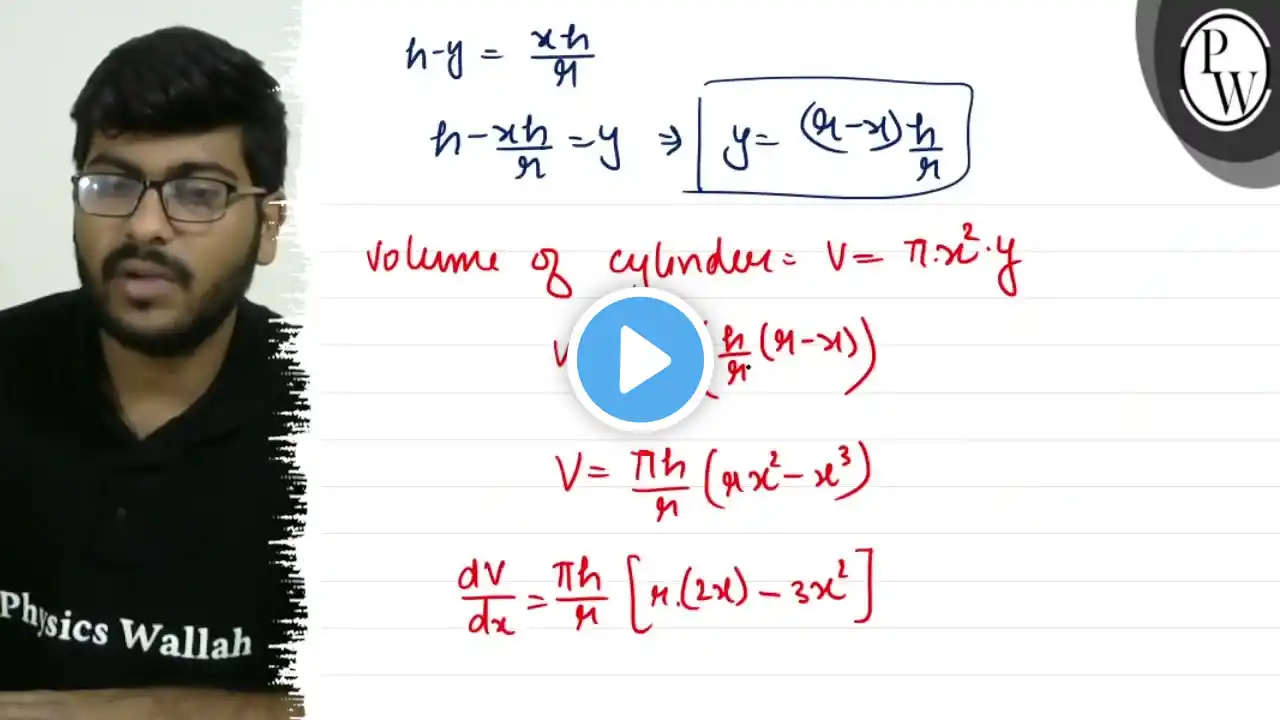 h-y = xh/r
h - xh/r = y ⇒ y = (r-x) h/r
volume of cylinder = V = π.x².y
V (h/r (r-x))
V = πh/r (rx² - x³)
dV/dx = πh/r [r.(2x) - 3x²]
PW
Physics Wallah